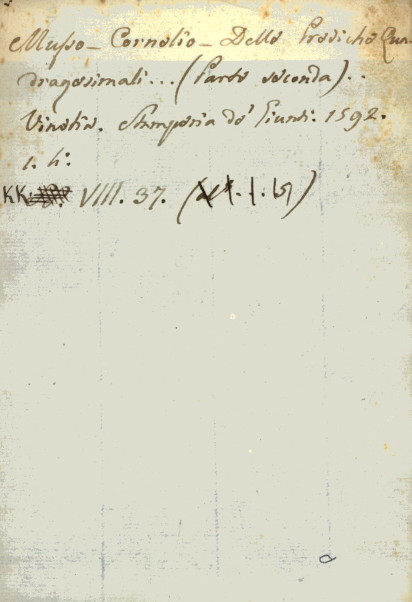 Musso - Cornelio - Delle Prediche Qua-
dragesimali... (Parte seconda)..
Vinetia. Stamperia de' Giunti. 1592.
1. 4°.
KK VIII. 37.